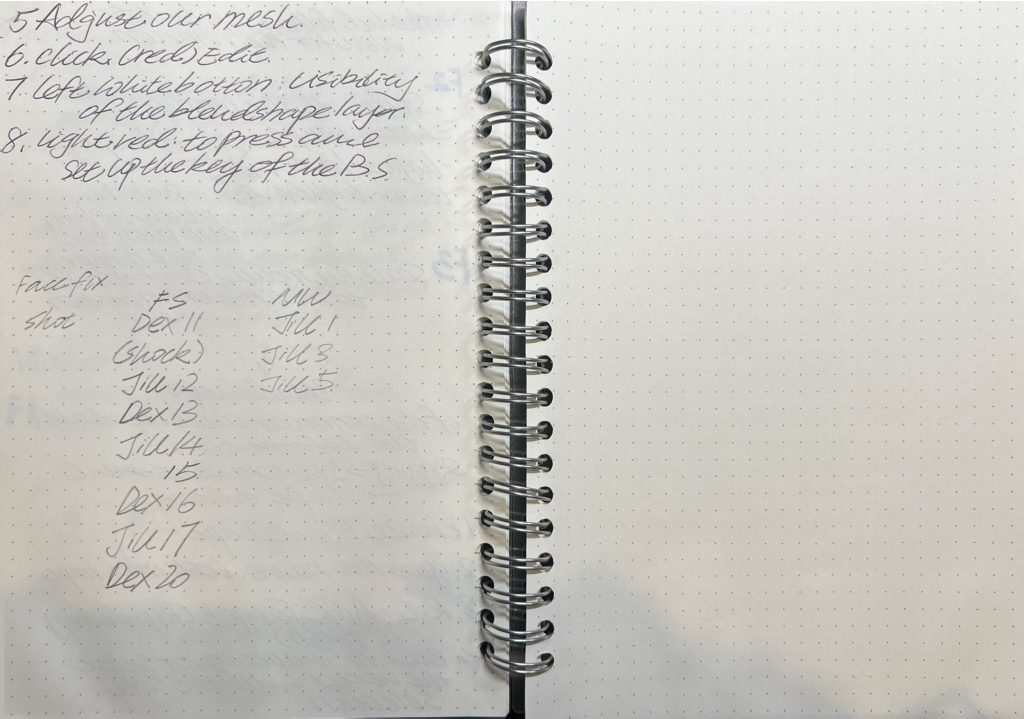 5. Adjust our mesh
6. click (red) Edit.
7. left white botton: visibility
of the blendshape layer.
8. light red: to press and
set up the key of the B.S.
Face fix
FS MW
Shot Dex 11 Jill 1
(shock) Jill 3
Jill 12 Jill 5
Dex 13
Jill 14
15.
Dex 16
Jill 17
Dex 20
F2
F3